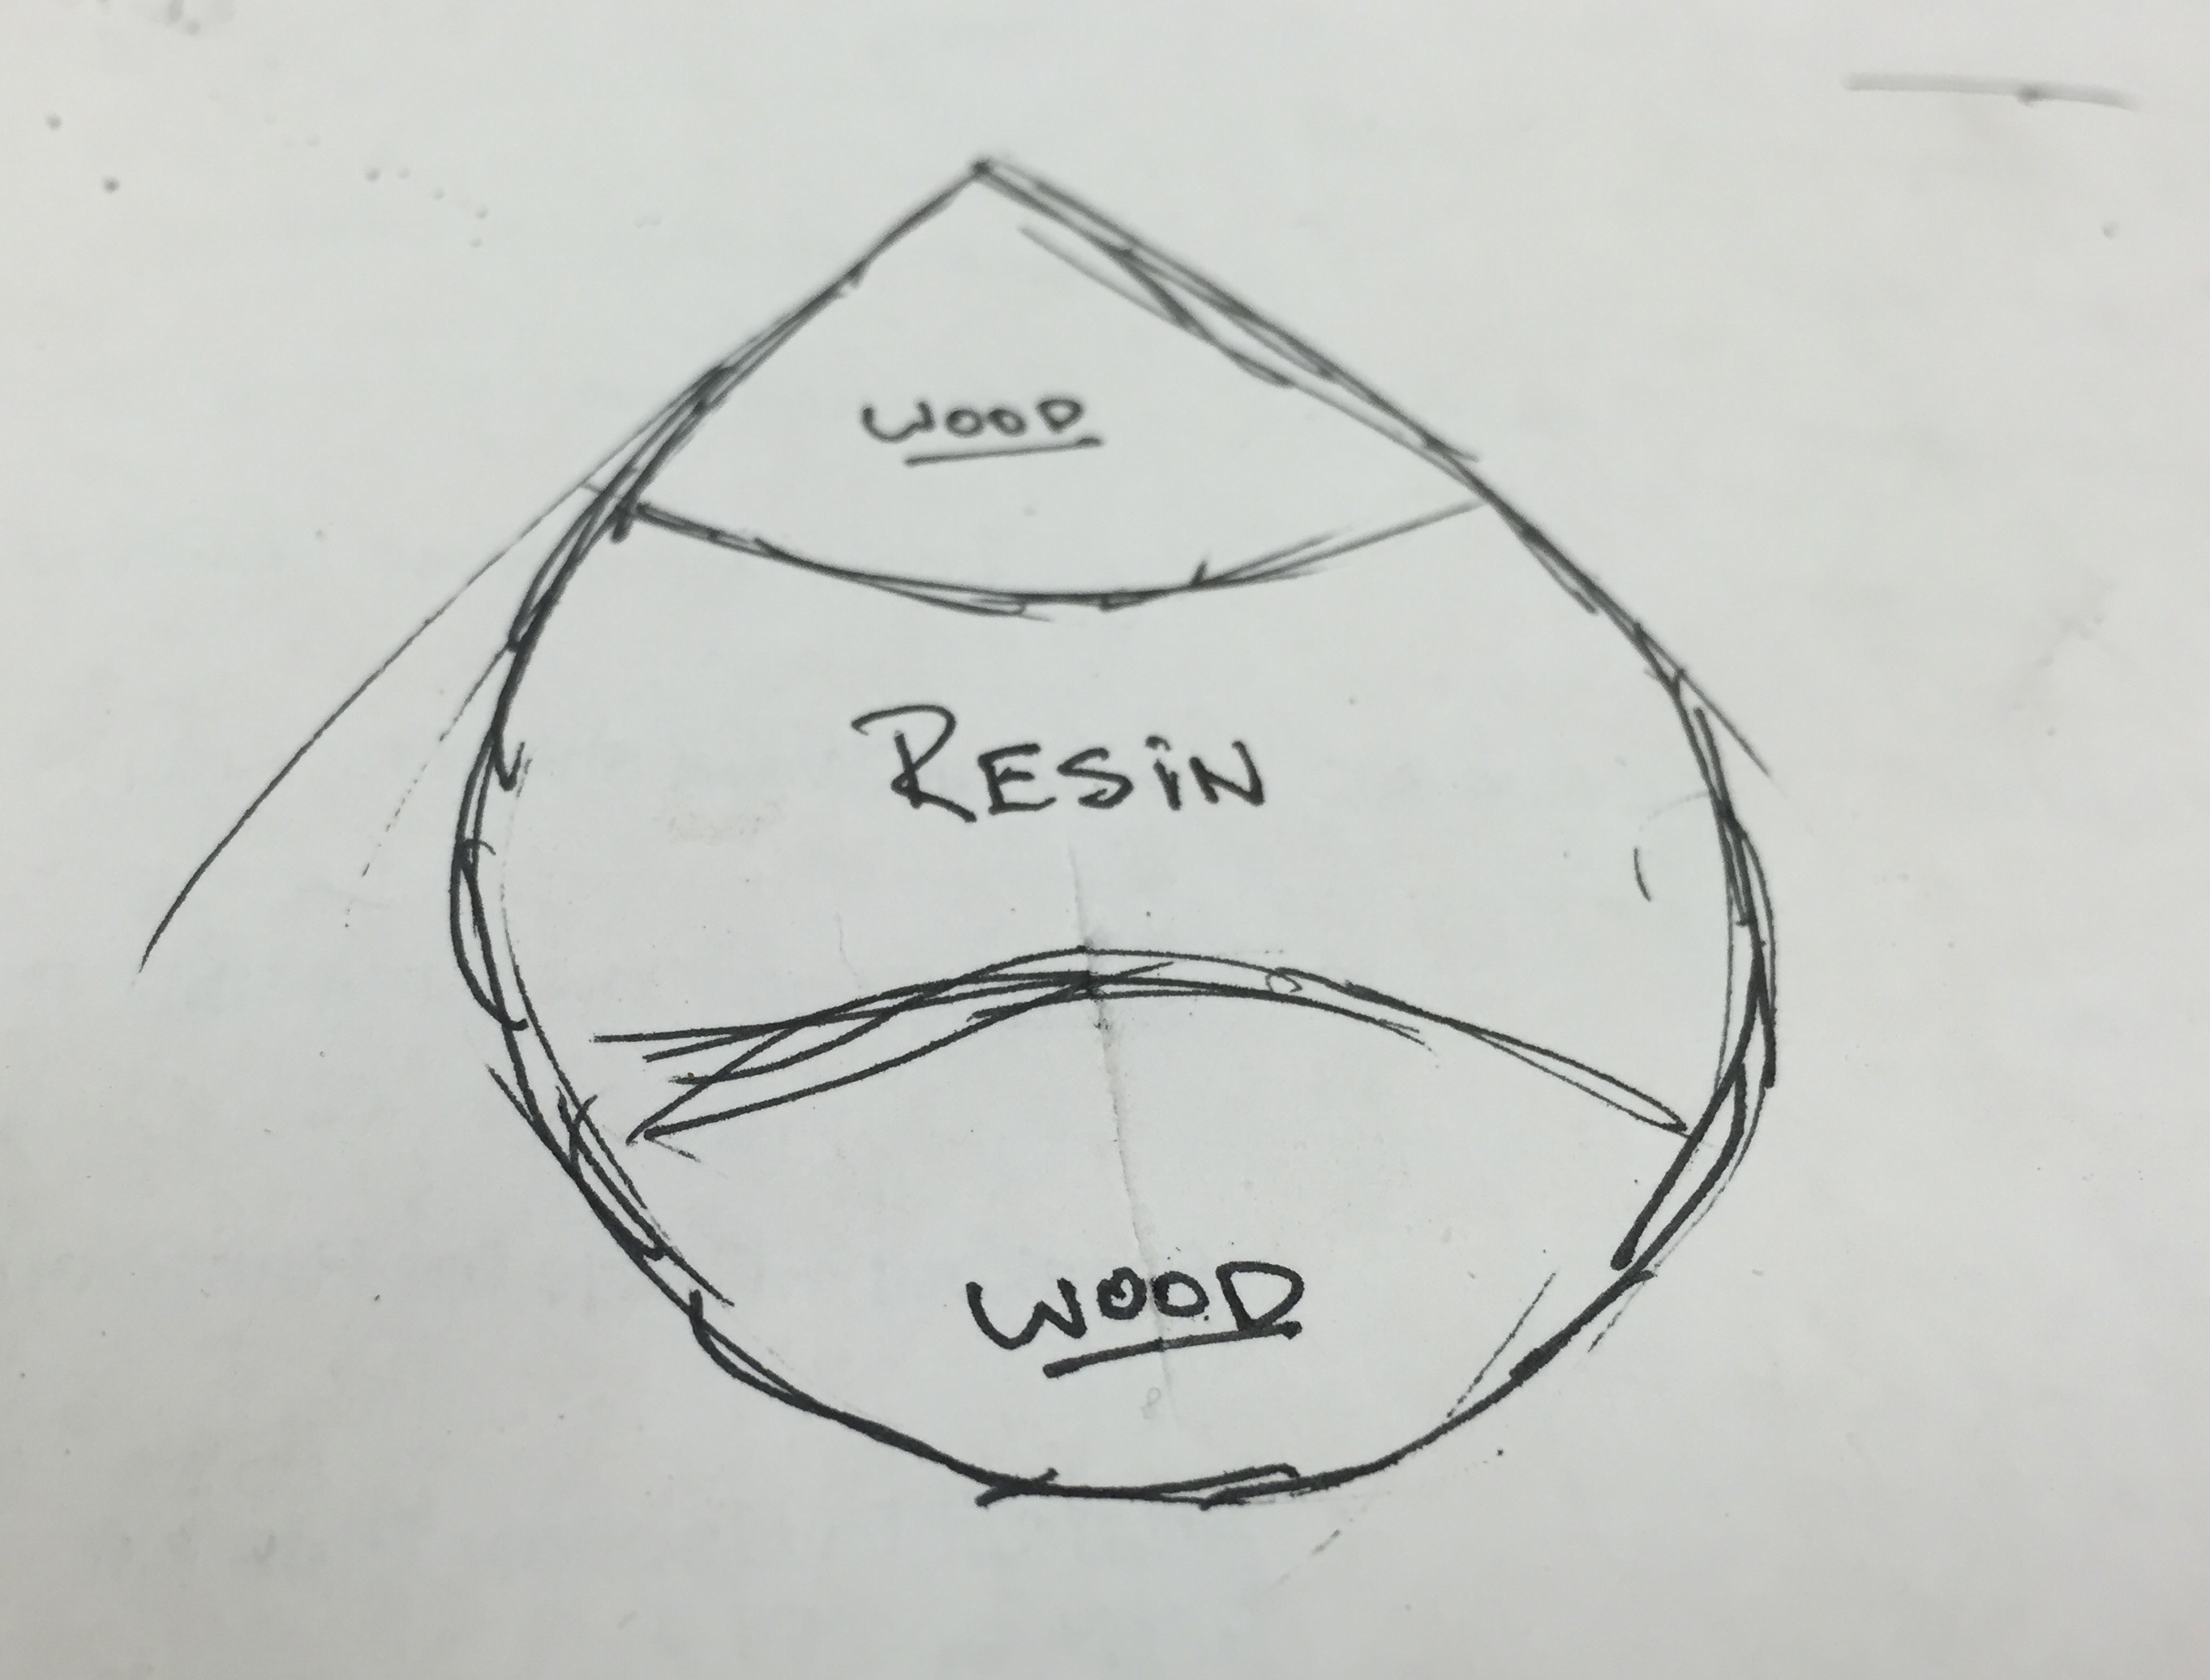 WOOD
RESiN
WOOD